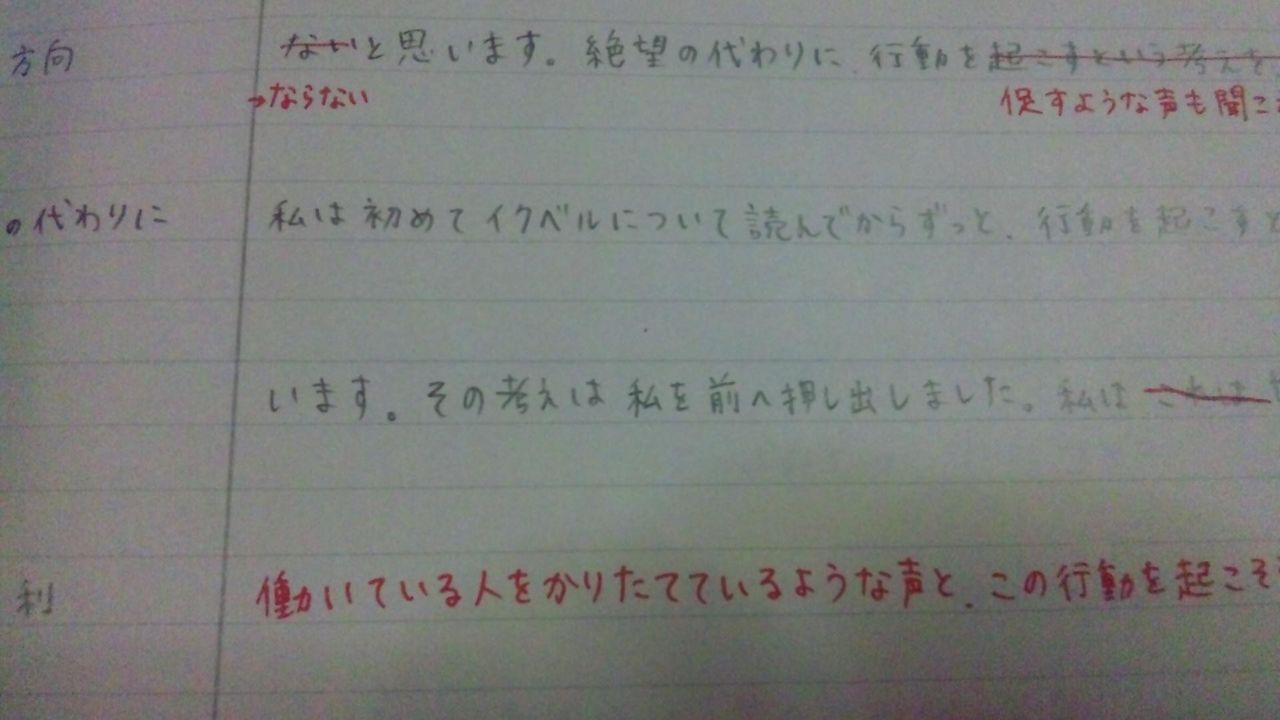 方向 ないと思います。絶望の代わりに、行動を起こすという考えを
→ならない 促すような声も聞こ
の代わりに 私は初めてイクベルについて読んでからずっと、行動を起こすと
います。その考えは私を前へ押し出しました。私はこれは
利 働いている人をかりたてているような声と、この行動を起こそ